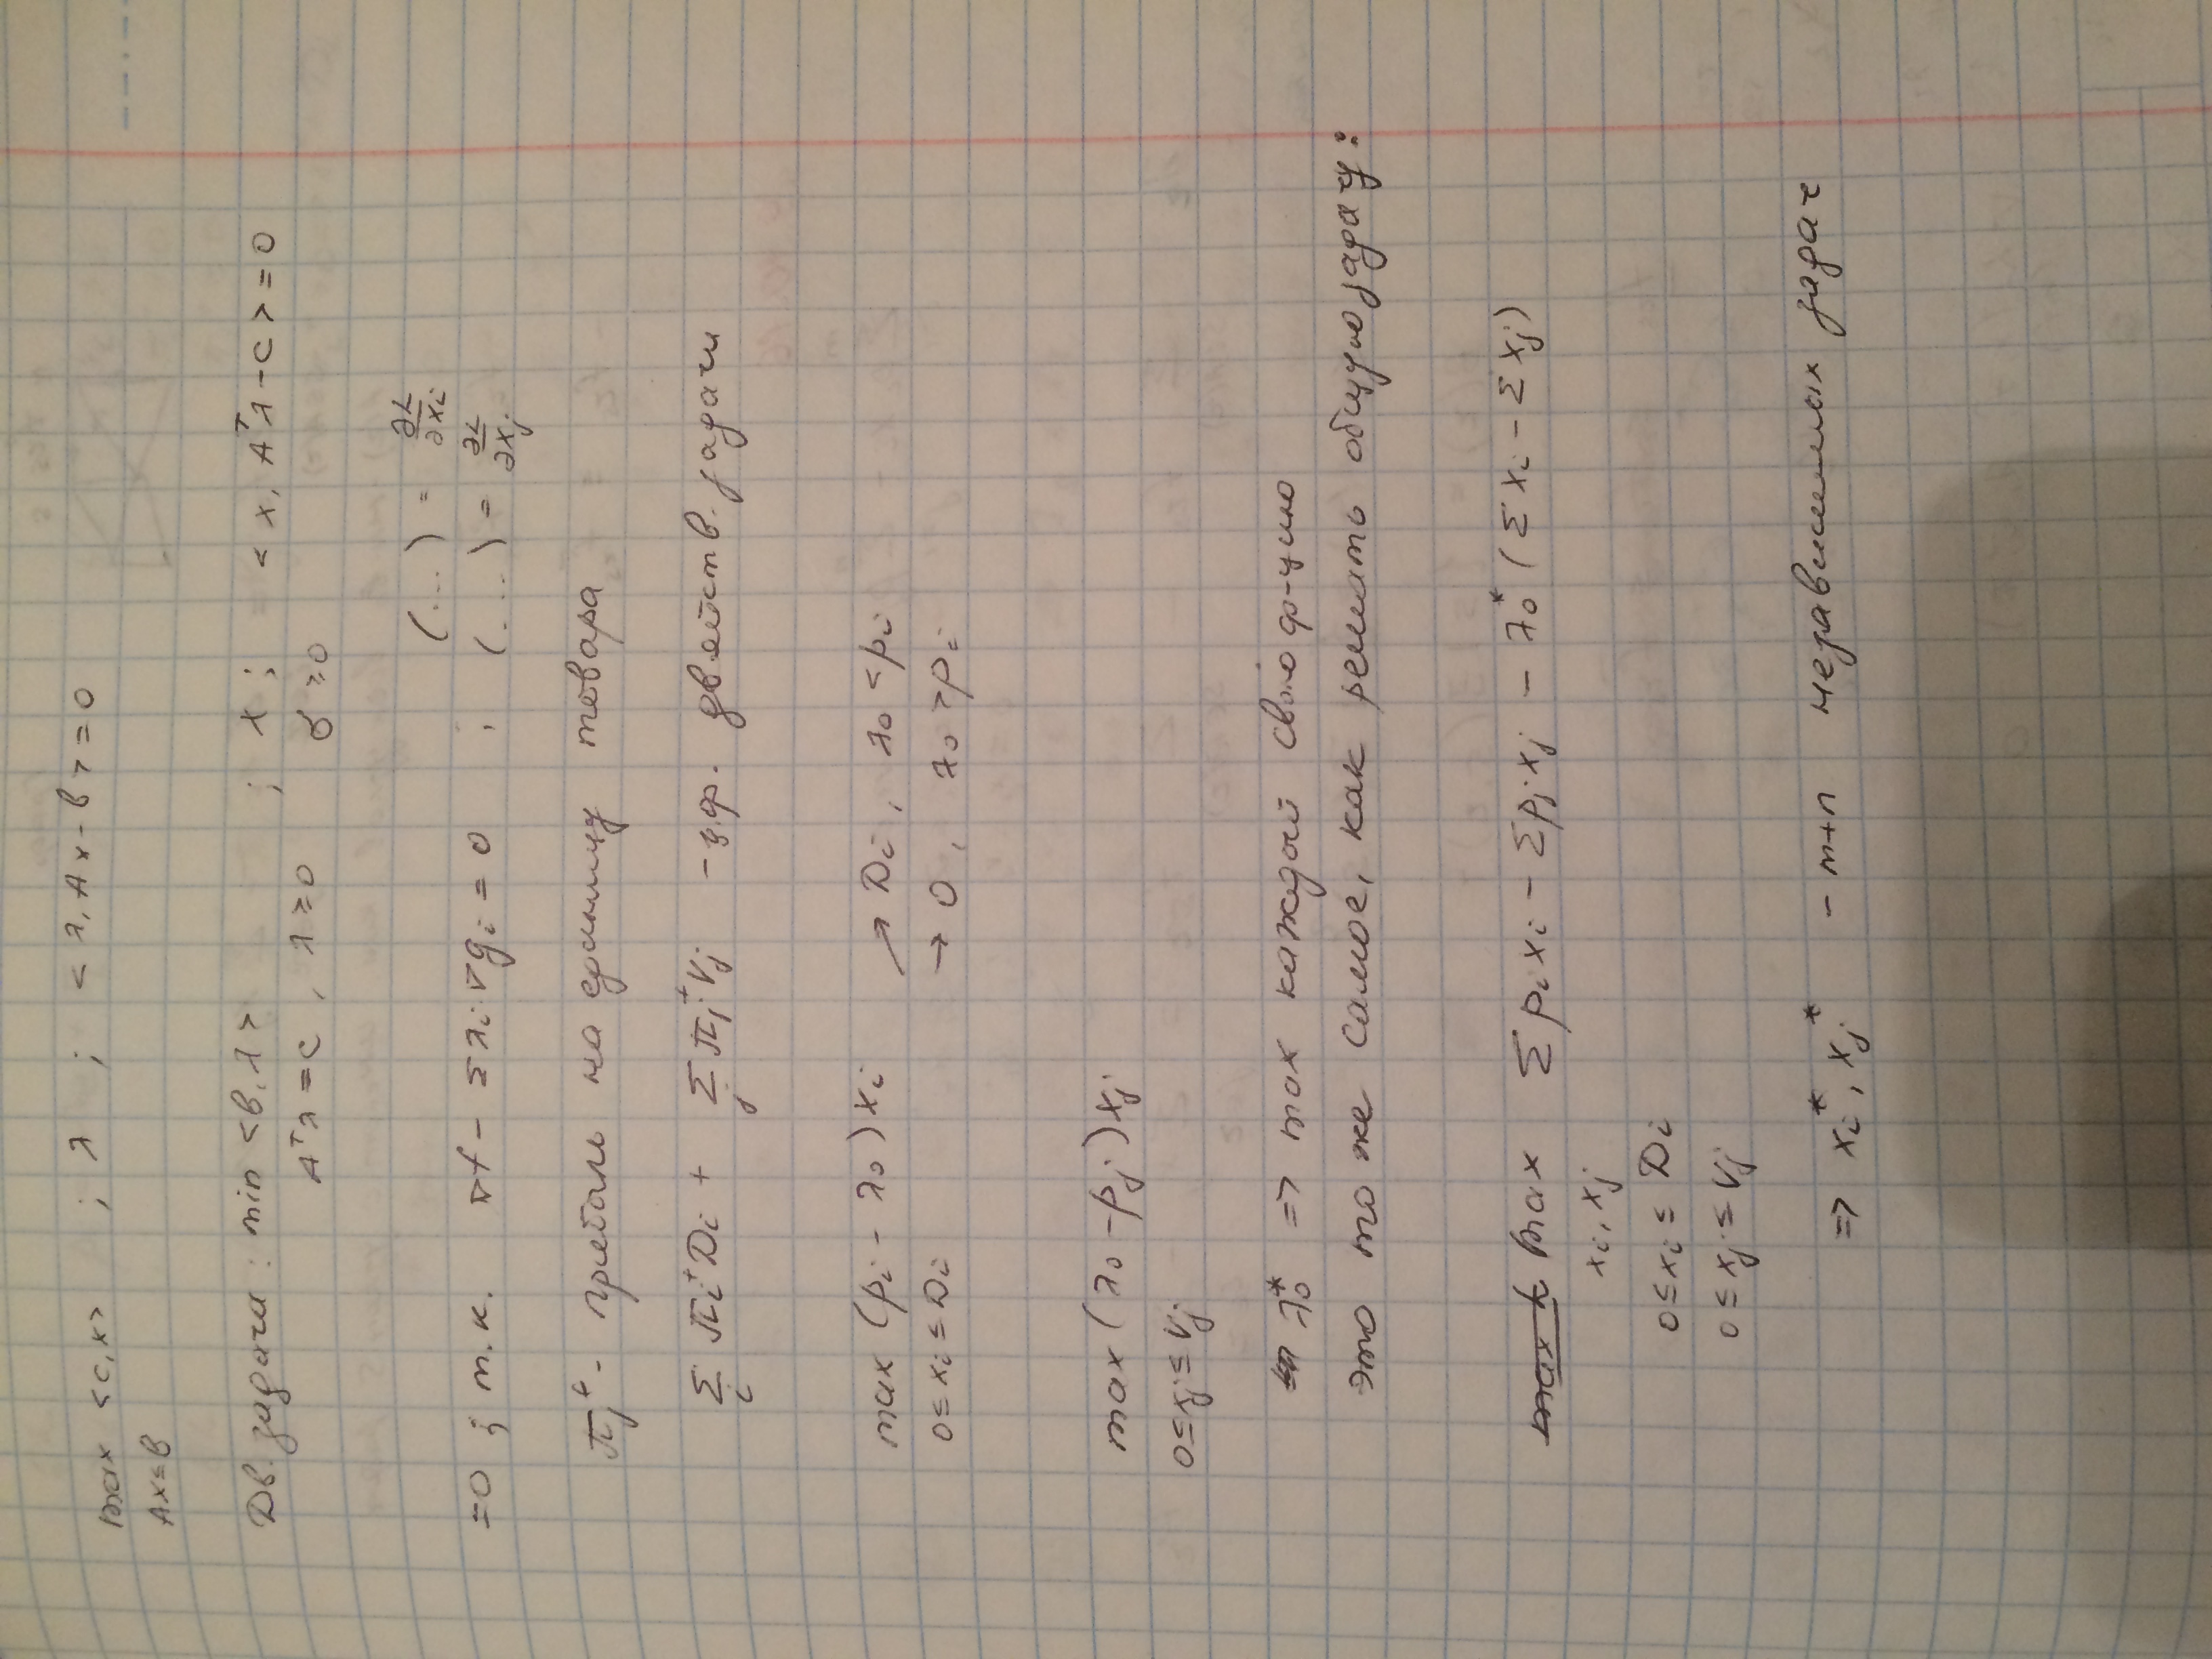 max <c,x> ; λ ; <λ, Ax-b> = 0
Ax≤b
Дв. задача: min <b, λ> ; x ; <x, Aᵀλ-c> = 0
Aᵀλ = c, λ ≥ 0 ≥ 0
(...) = ∂L/∂xᵢ
= 0 ; т.к. ∇f - Σλᵢ∇gᵢ = 0 ; (...) = ∂L/∂xⱼ
πⱼ⁺ - прибыль на единицу товара
Σᵢ πᵢ⁺Dᵢ + Σⱼ πⱼ⁺Vⱼ - ц.ф. двойств. задачи
max (pᵢ - λ₀)xᵢ ↗ Dᵢ, λ₀ < pᵢ
0 ≤ xᵢ ≤ Dᵢ → 0, λ₀ > pᵢ
max (λ₀ - pⱼ)xⱼ
0 ≤ xⱼ ≤ Vⱼ
λ₀* => max каждой свою ф-цию
это то же самое, как решать общую задачу:
max Σ pᵢxᵢ - Σpⱼxⱼ - λ₀*(Σxᵢ - Σxⱼ)
xᵢ, xⱼ
0 ≤ xᵢ ≤ Dᵢ
0 ≤ xⱼ ≤ Vⱼ
=> xᵢ*, xⱼ* - m+n независимых задач